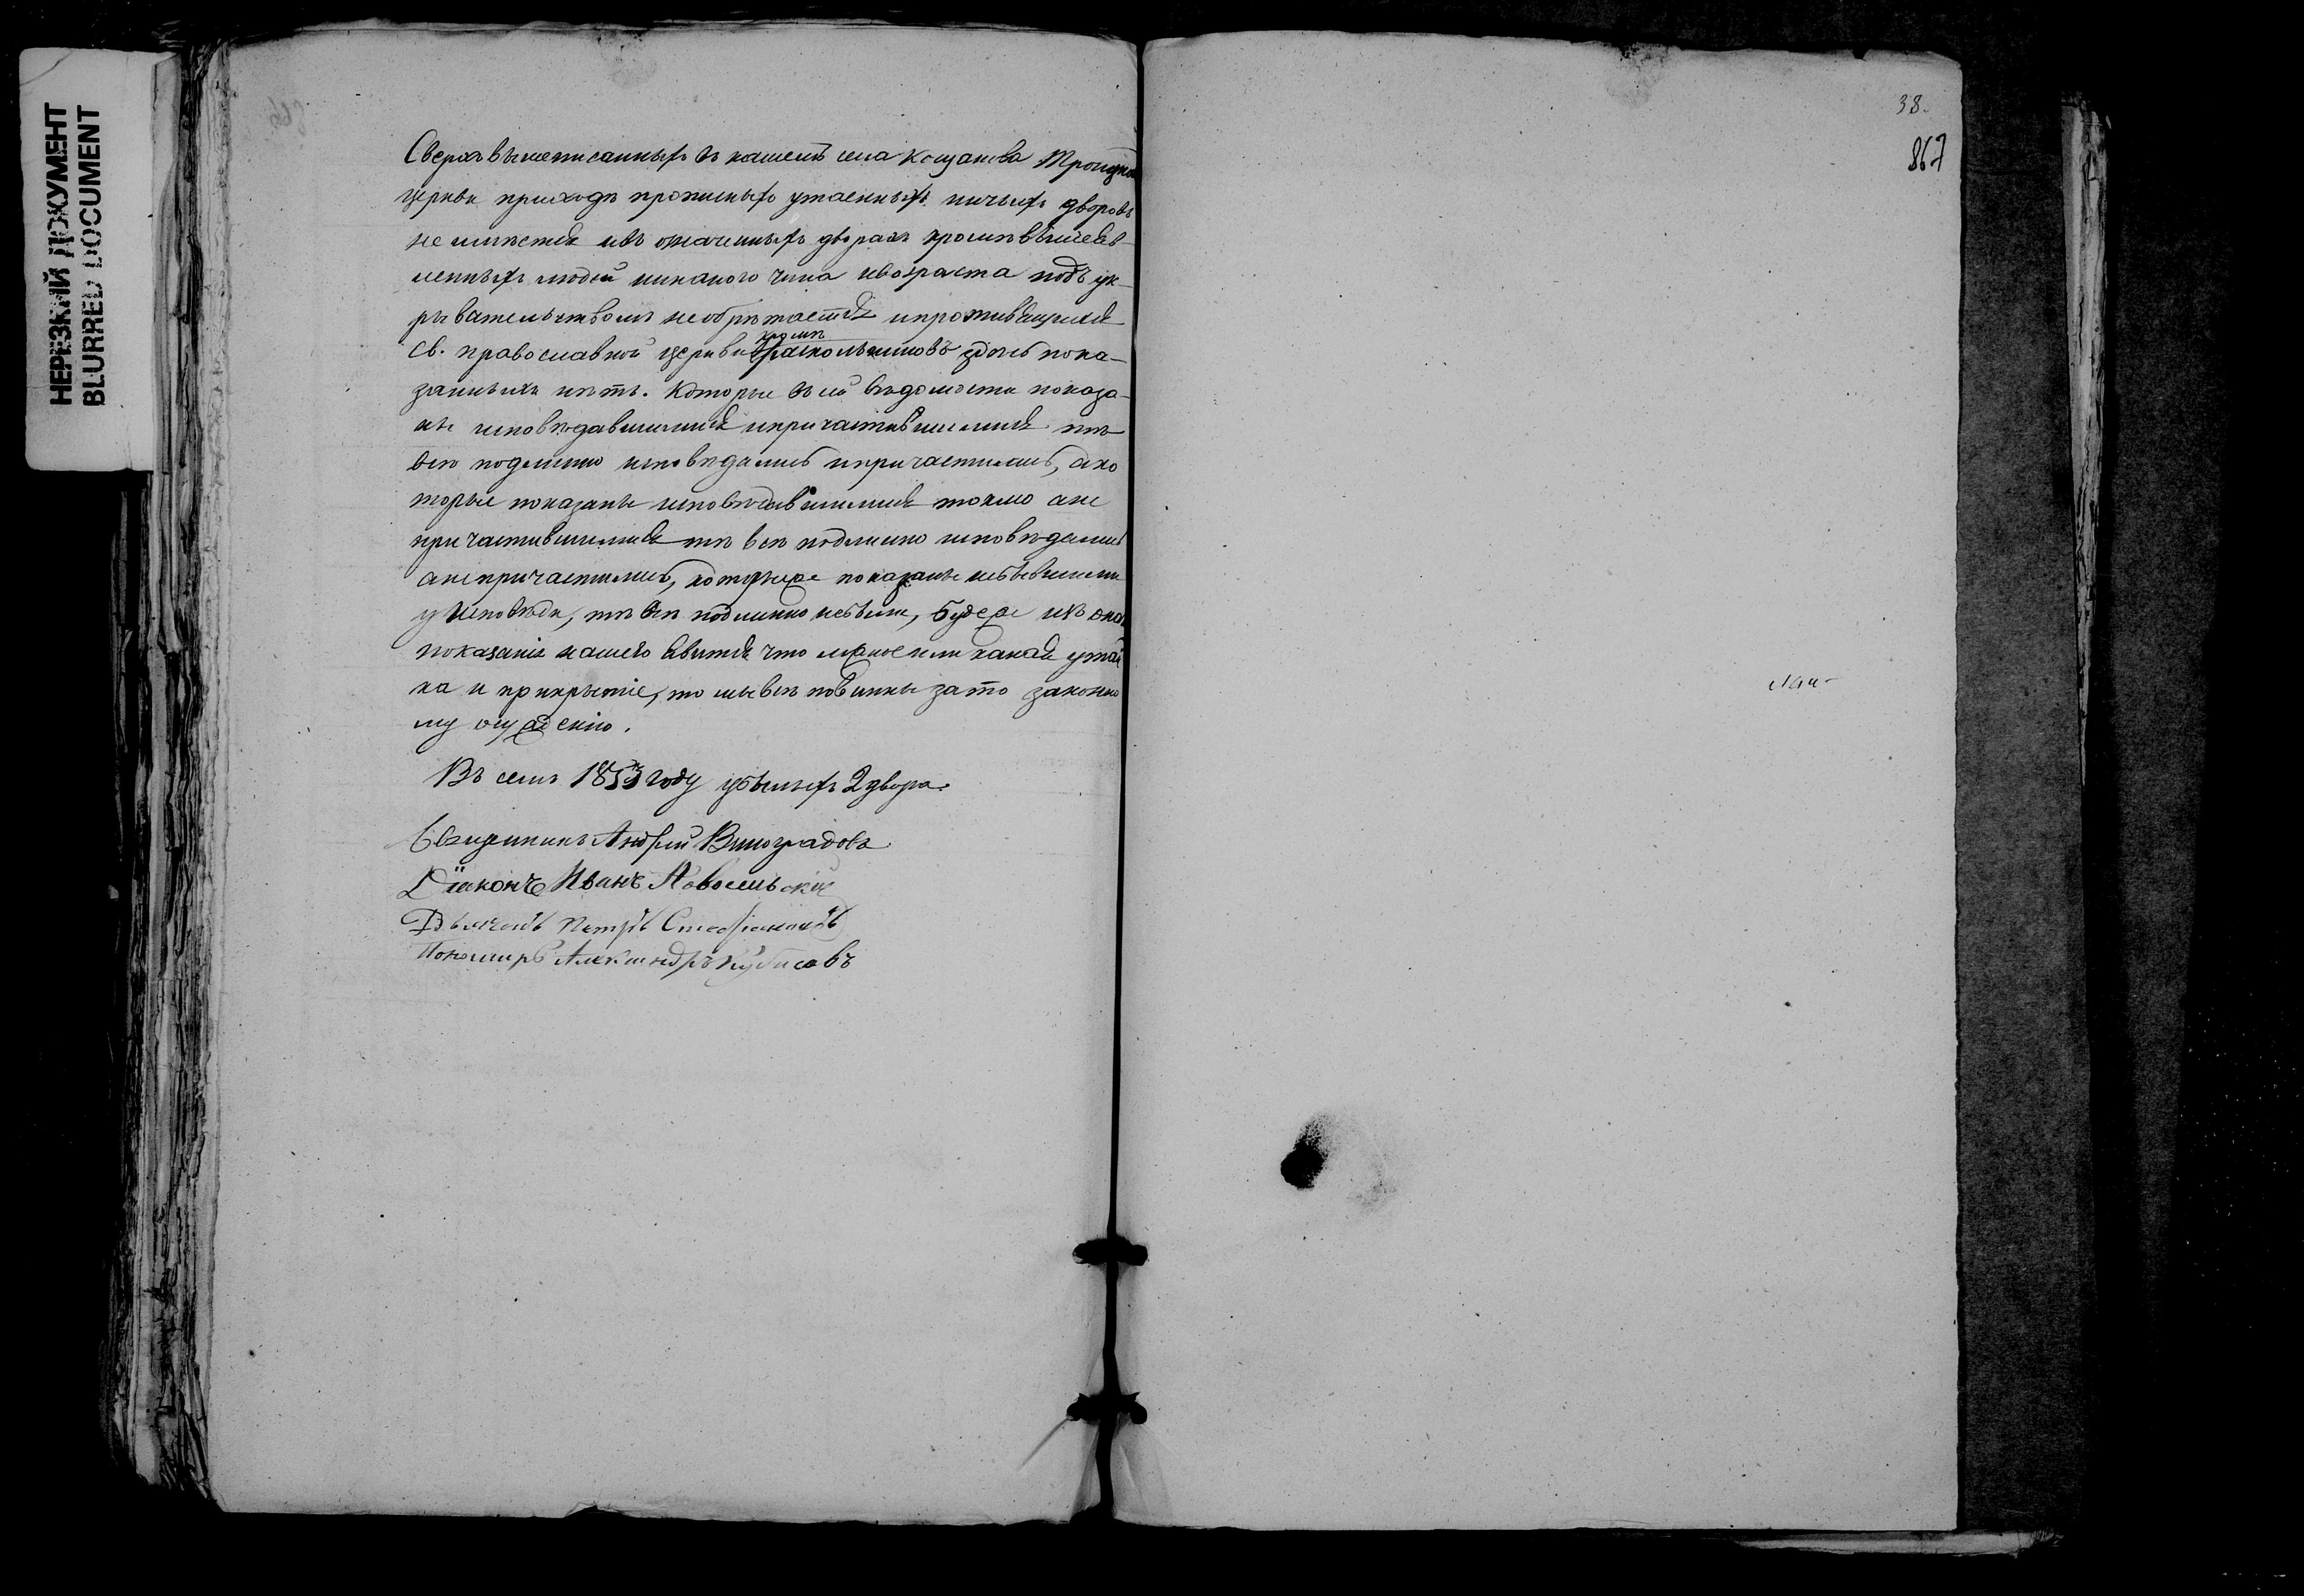 НЕРЕЗКИЙ ДОКУМЕНТ
BLURRED DOCUMENT
Сверхъ вышеписанныхъ въ нашемъ села Кощакова Троицкой
церкви приходѣ прописныхъ утаенныхъ ничьихъ дворовъ
не имѣется ивъ означенныхъ дворахъ кромѣ вышеяв-
ленныхъ людей никакого чина ивозраста подъ ук-
рывательствомъ необрѣтается ипротивящихся
кромѣ
св. православной церкви раскольниковъ здѣсь пока-
занныхъ нѣтъ. Которые всей вѣдомости показа-
ны исповѣдавшимися ипричастившимися тѣ
всѣ подлинно исповѣдались ипричастились, ако
торые показаны исповѣдавшимися токмо ане
причастившимися тѣ всѣ подлинно исповѣдались
анепричастились, которыеже показаны небывшими
у исповѣди, тѣ всѣ подлинно небыли, Будеже изъ она
показанія нашего явится что ложное или какая утай
ка и прикрытіе, то мы всѣ повинны зато законно
му осужденію.
Въ семъ 1853 году убылыхъ 2 двора.
Священникъ Андрей Виноградовъ
Діаконъ Иванъ Новосельскій
Дьячекъ Петръ
Пономарь Александръ
38.
867